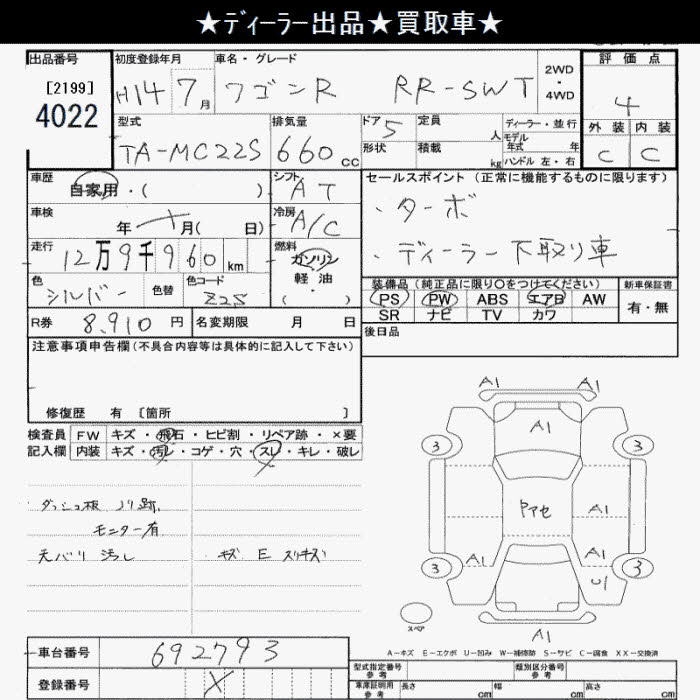 ★ディーラー出品★買取車★
出品番号
[2199]
4022
初度登録年月
H14 7月
車名・グレード
ワゴンR RR-SWT
2WD
・
4WD
評価点
4
外装 内装
C C
型式
TA-MC22S
排気量
660cc
ドア 5
形状
定員 人
積載 kg
ディーラー・並行
モデル
年式 年
ハンドル 左・右
車歴
自家用・( )
シフト
AT
セールスポイント(正常に機能するものに限ります)
・ターボ
・ディーラー下取り車
車検
年 月( 日)
冷房
A/C
走行
12万9千960km
燃料
ガソリン
軽油
・( )
色
シルバー
色替
色コード
Z2S
装備品(純正品に限り○をつけてください)
PS PW ABS エアB AW
SR ナビ TV カワ
新車保証書
有・無
R券 8,910円
名変期限 月 日
後日品
注意事項申告欄(不具合内容等は具体的に記入して下さい)
修復歴 有 [箇所 ]
検査員 FW キズ・飛石・ヒビ割・リペア跡・×要
記入欄 内装 キズ・汚レ・コゲ・穴・スレ・キレ・破レ
ダッシュ板 ノリ跡
モニター有
天バリ 汚レ
キズ E スリキズ
A1 A1
A1
3 3
Pアセ
A1
A1 A1
3 U1 3
スペア
A1
A-キズ E-エクボ U-凹み W-補修跡 S-サビ C-腐食 XX-交換済
車台番号 692793
登録番号 X
型式指定番号
参考
類別区分番号
参考
車庫証明用
参考
長さ cm
幅 cm
高さ cm